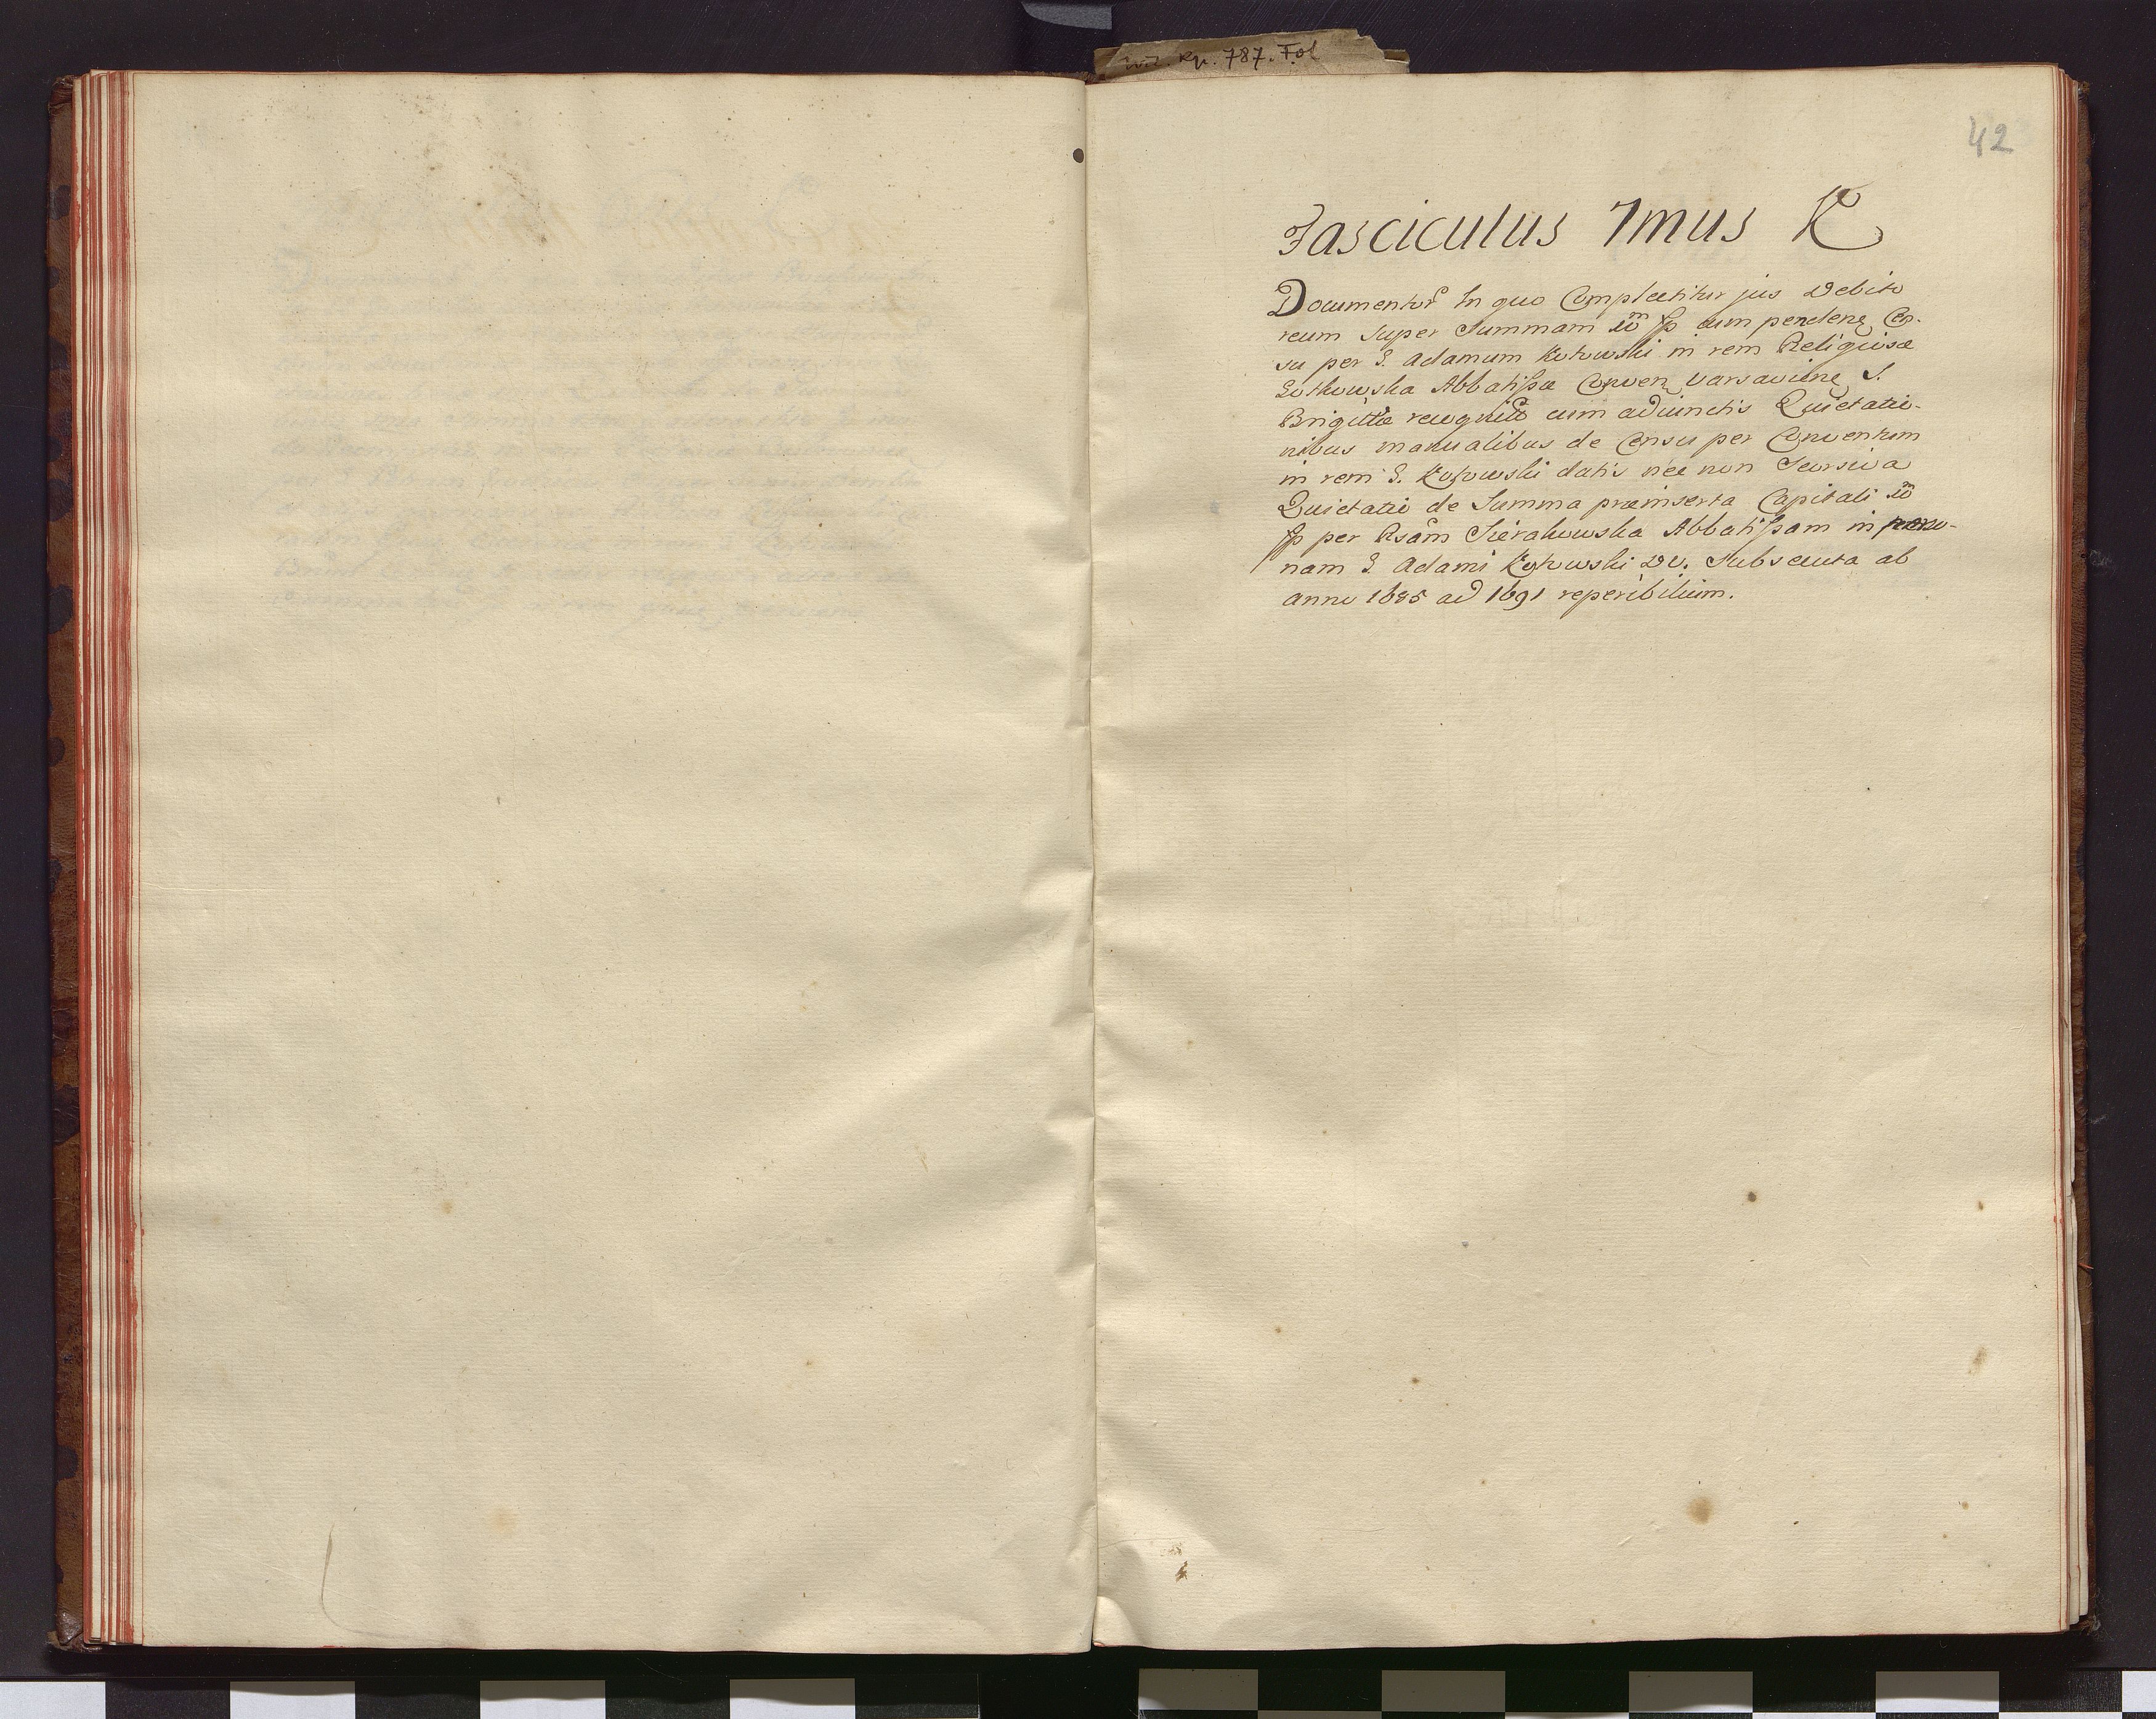 Rp. 787. Fol
42
Fasciculus 7mus K
Documentor̃ In quo Complectitur jus Debito
reum super Summam 10m fp cum penden Cen-
su per G. Adamum Kotowski in rem Religiosæ
Zothowska Abbatißæ Conven Varsavien S.
Brigittæ recognit cum adiunctis Quietatio-
nibus manualibus de Censu per Conventum
in rem G. Kotowski datis nec non Seorsiva
Quietatio de Summa præinserta Capitali 10m
fp per Rsam Sierakowska Abbatißam in perso-
nam G. Adami Kotowski DV. Subsecuta ab
anno 1685 ad 1691 reperibilium.